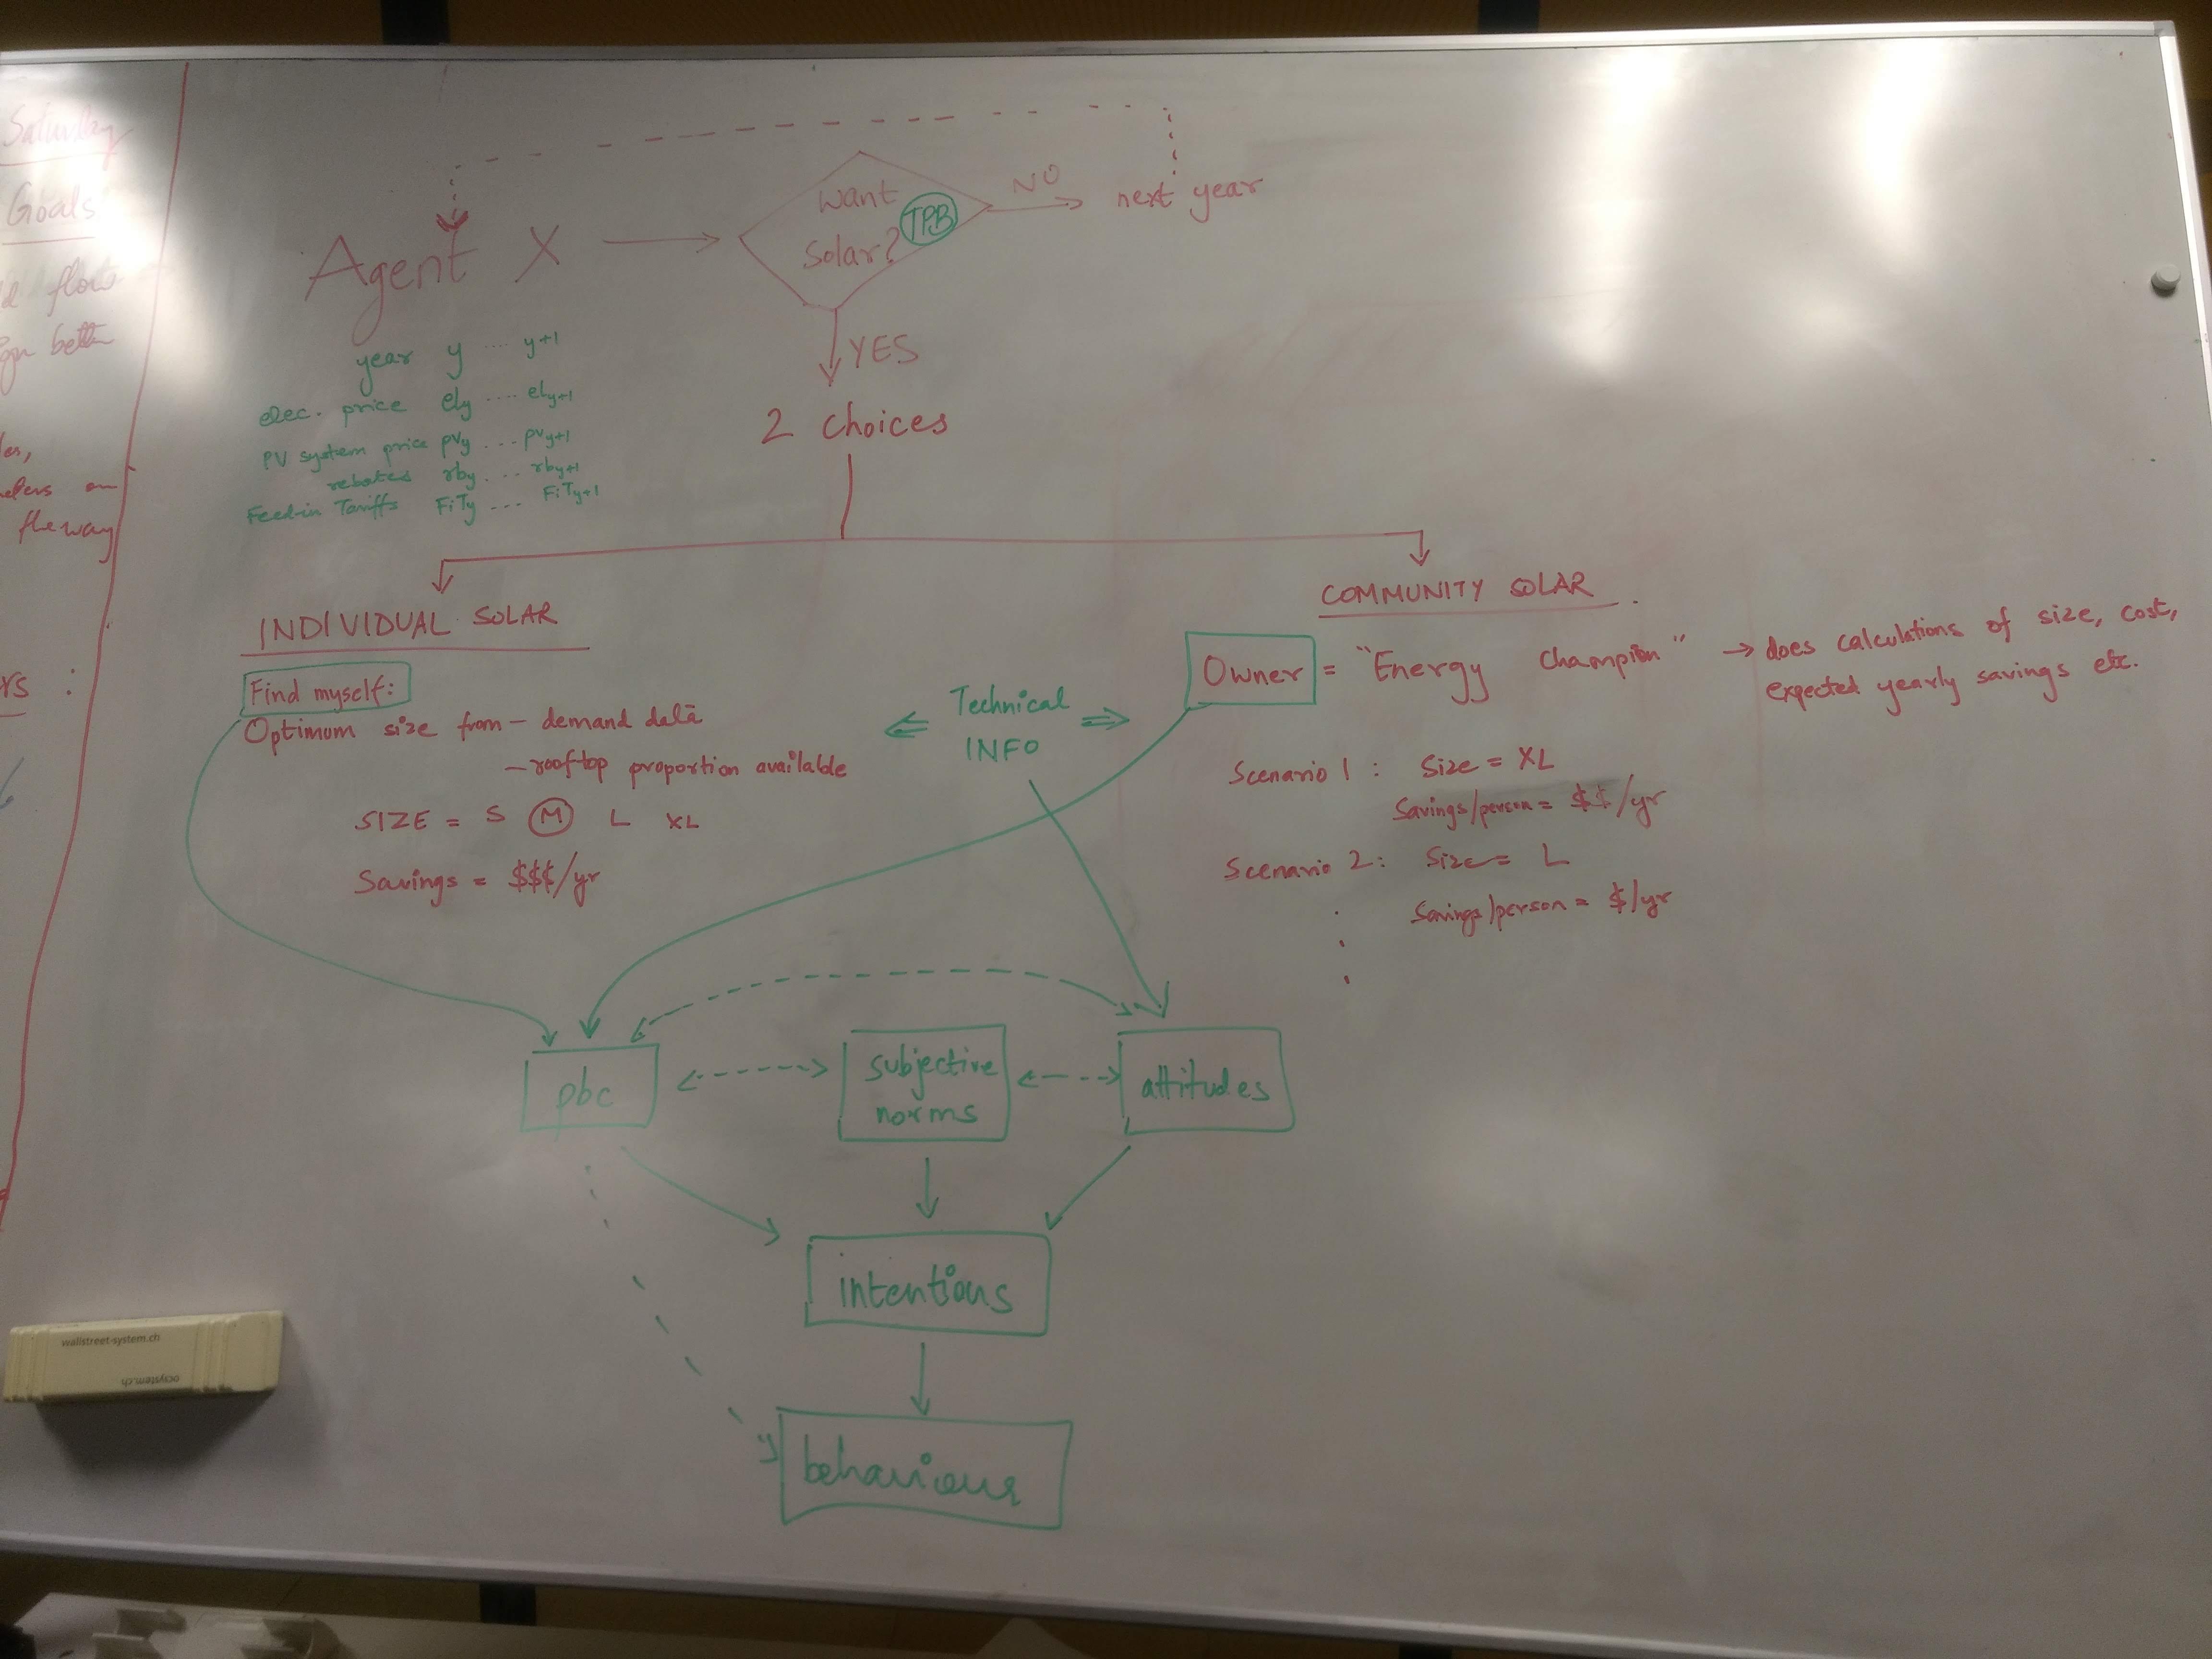 Saturday
Goals
flow
better
on
the way
:
Agent X
want
Solar?
TPB
NO
next year
YES
2 choices
year y .... y+1
elec. price ely .... ely+1
PV system price pvy ... pvy+1
rebates rby ... rby+1
Feed-in Tariffs FiTy ... FiTy+1
INDIVIDUAL SOLAR
Find myself:
Optimum size from – demand data
– rooftop proportion available
SIZE = S M L XL
Savings = $$$/yr
Technical
INFO
COMMUNITY SOLAR
Owner = "Energy Champion" → does calculations of size, cost,
expected yearly savings etc.
Scenario 1 : Size = XL
Savings/person = $$/yr
Scenario 2 : Size = L
Savings/person = $/yr
pbc
subjective
norms
attitudes
intentions
behaviour
wallstreet-system.ch
ocsystem.ch